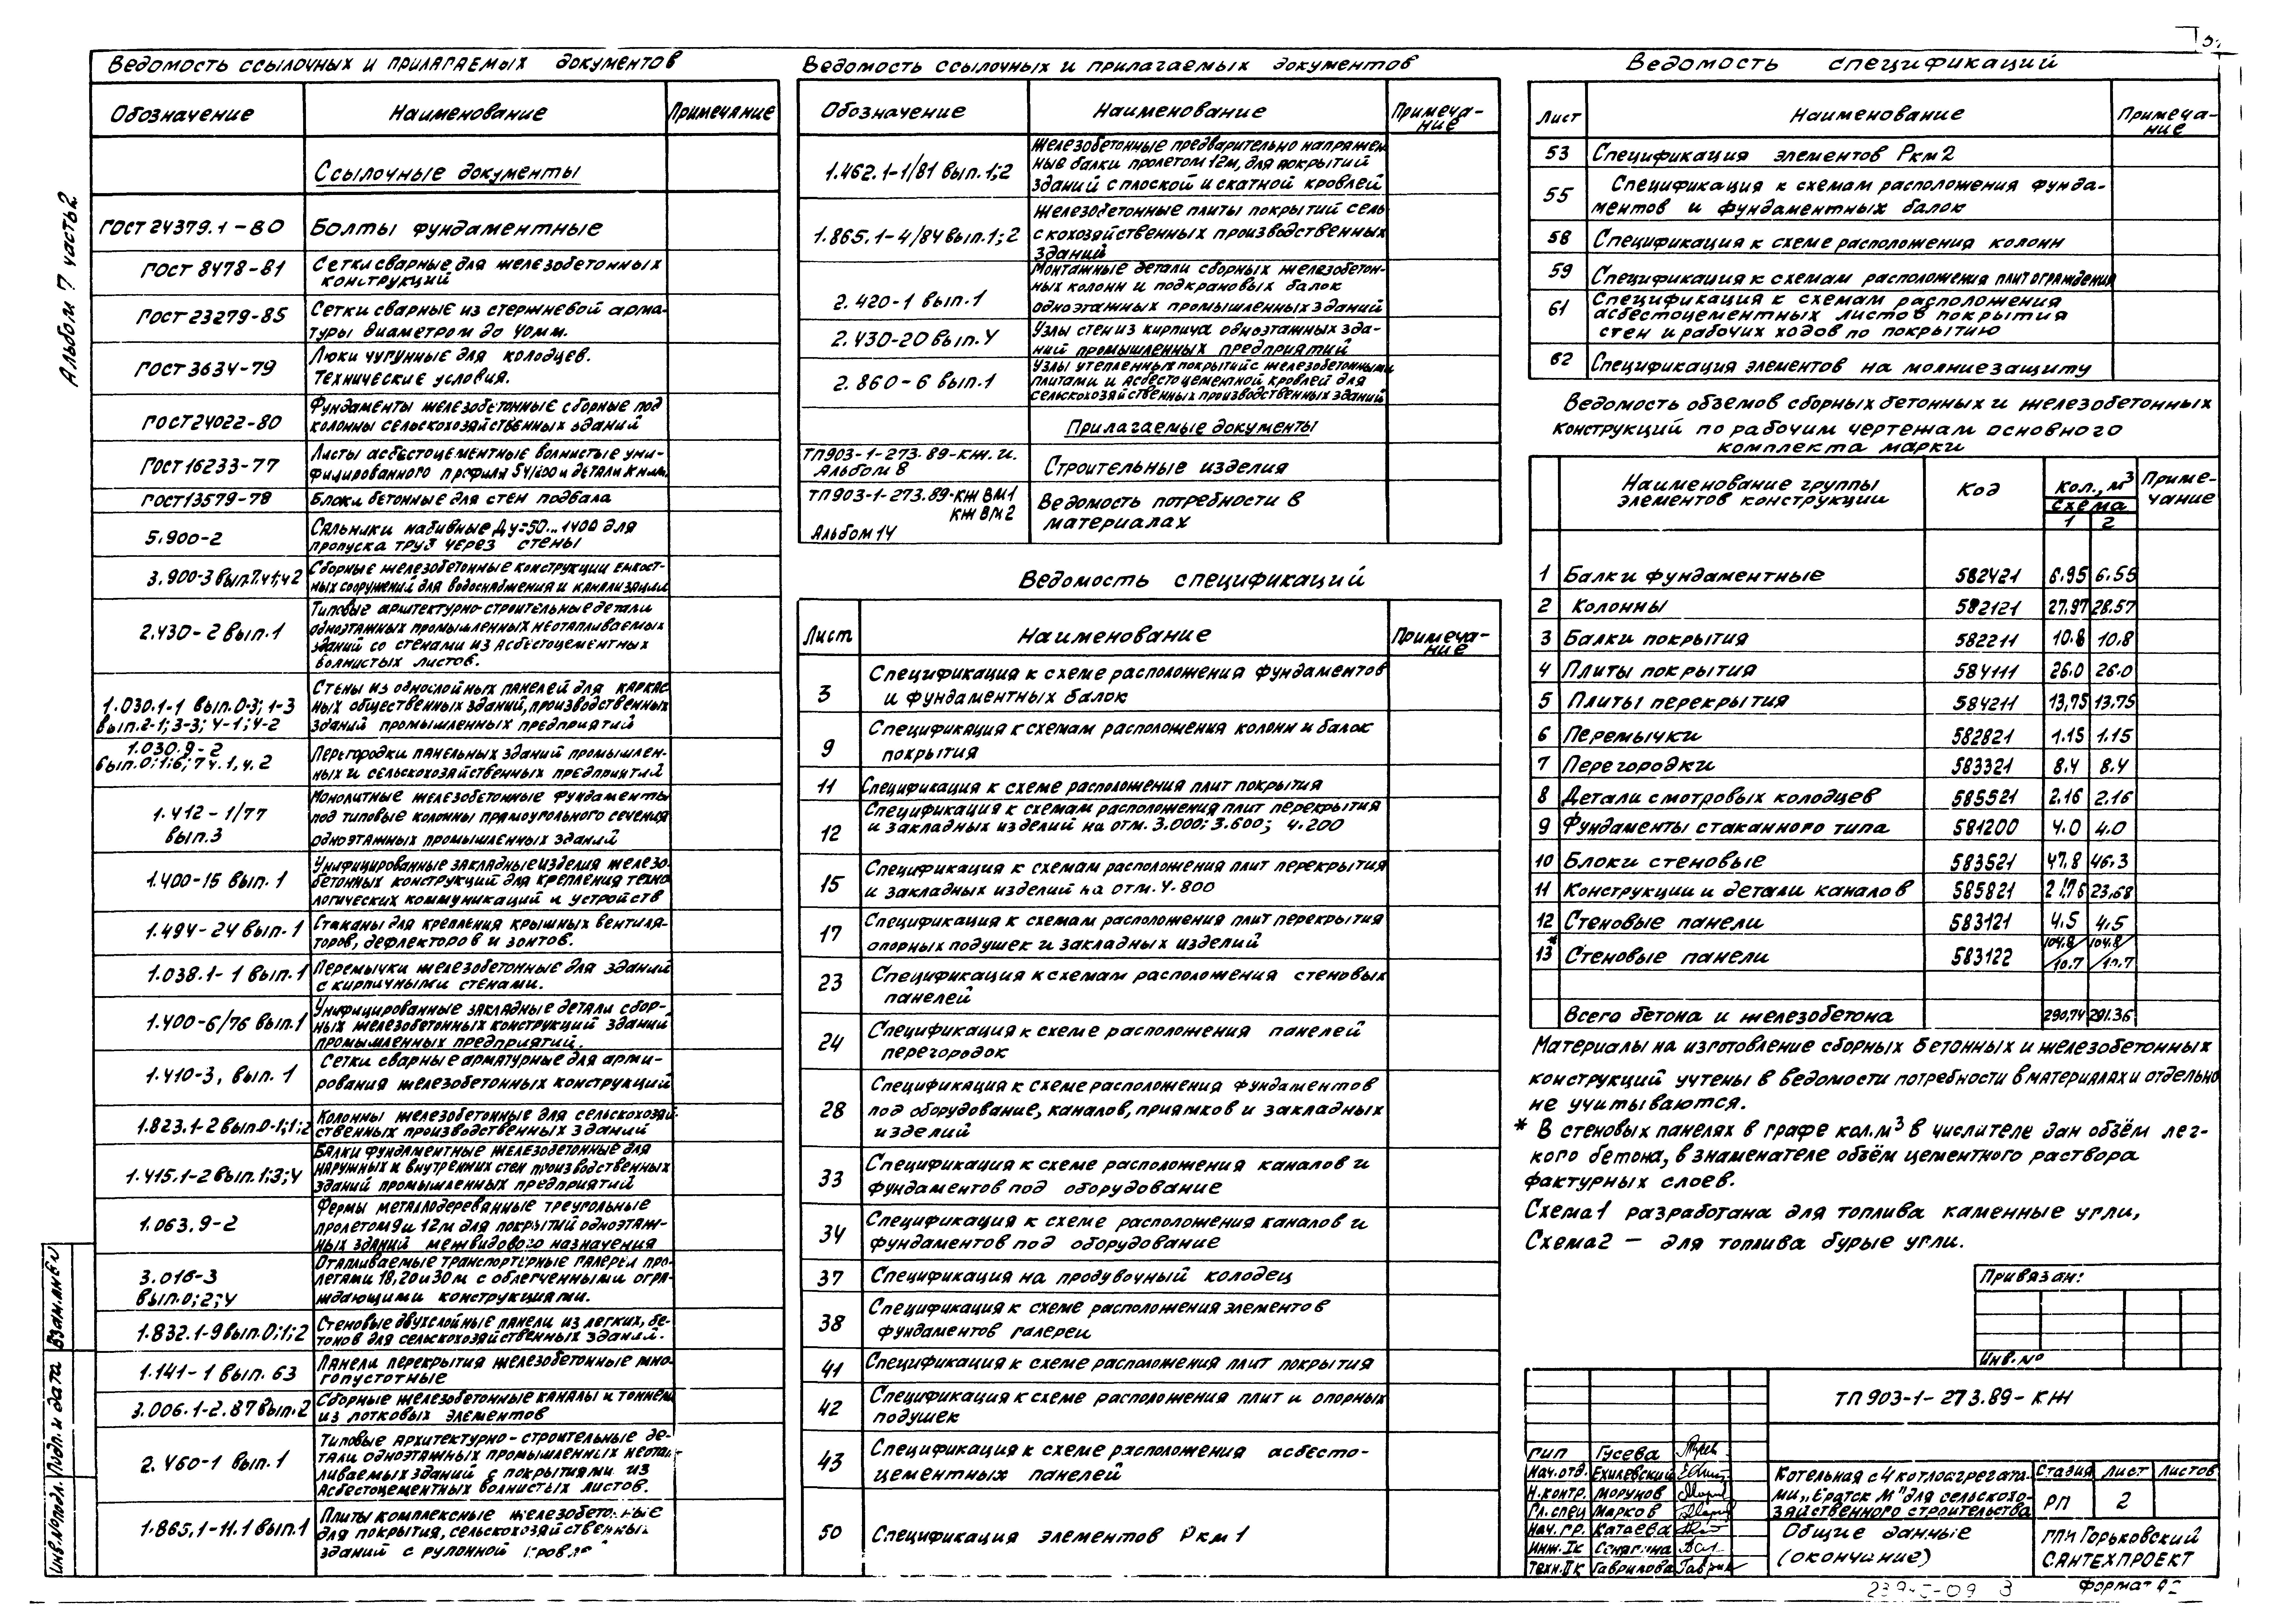 Альбом 7 часть 2
Ведомость ссылочных и прилагаемых документов
Обозначение Наименование Примечание
Ссылочные документы
ГОСТ 24379.1-80 Болты фундаментные
ГОСТ 8478-81 Сетки сварные для железобетонных
конструкций
ГОСТ 23279-85 Сетки сварные из стержневой арма-
туры диаметром до 40мм.
ГОСТ 3634-79 Люки чугунные для колодцев.
Технические условия.
ГОСТ 24022-80 Фундаменты железобетонные сборные под
колонны сельскохозяйственных зданий
ГОСТ 16233-77 Листы асбестоцементные волнистые уни-
фицированного профиля 54/200 и детали к ним.
ГОСТ 13579-78 Блоки бетонные для стен подвала
5.900-2 Сальники набивные Ду=50...1400 для
пропуска труб через стены
3.900-3 вып.7.ч1;ч2 Сборные железобетонные конструкции емкост-
ных сооружений для водоснабжения и канализации
2.430-2 вып.1 Типовые архитектурно-строительные детали
одноэтажных промышленных неотапливаемых
зданий со стенами из асбестоцементных
волнистых листов.
1.030.1-1 вып.0-3; 1-3
вып.2-1; 3-3; 4-1; 4-2
Стены из однослойных панелей для каркас
ных общественных зданий, производственных
зданий промышленных предприятий
1.030.9-2
вып.0;1;6;7 ч.1, ч.2
Перегородки панельных зданий промышлен-
ных и сельскохозяйственных предприятий
1.412-1/77
вып.3
Монолитные железобетонные фундаменты
под типовые колонны прямоугольного сечения
одноэтажных промышленных зданий
1.400-15 вып.1 Унифицированные закладные изделия железо-
бетонных конструкций для крепления техно
логических коммуникаций и устройств
1.494-24 вып.1 Стаканы для крепления крышных вентиля-
торов, дефлекторов и зонтов.
1.038.1-1 вып.1 Перемычки железобетонные для зданий
с кирпичными стенами.
1.400-6/76 вып.1 Унифицированные закладные детали сбор-
ных железобетонных конструкций зданий
промышленных предприятий.
1.410-3, вып.1 Сетки сварные арматурные для арми-
рования железобетонных конструкций
1.823.1-2 вып.0-1;1;2 Колонны железобетонные для сельскохозяй-
ственных производственных зданий
1.415.1-2 вып.1;3;4 Балки фундаментные железобетонные для
наружных и внутренних стен производственных
зданий промышленных предприятий
1.063.9-2 Фермы металлодеревянные треугольные
пролетом 9 и 12м для покрытий одноэтаж-
ных зданий межвидового назначения
3.016-3
вып.0;2;4
Отапливаемые транспортерные галереи про-
летами 18,20 и 30м с облегченными огра-
ждающими конструкциями.
1.832.1-9 вып.0;1;2 Стеновые двухслойные панели из легких бе-
тонов для сельскохозяйственных зданий.
1.141-1 вып.63 Панели перекрытия железобетонные мно-
гопустотные
3.006.1-2.87 вып.2 Сборные железобетонные каналы и тоннели
из лотковых элементов
2.460-1 вып.1 Типовые архитектурно-строительные де-
тали одноэтажных промышленных неотап-
ливаемых зданий с покрытиями из
асбестоцементных волнистых листов.
1.865.1-11.1 вып.1 Плиты комплексные железобетонные
для покрытия, сельскохозяйственных
зданий с рулонной кровлей
Ведомость ссылочных и прилагаемых документов
Обозначение Наименование Примеча-
ние
1.462.1-1/81 вып.1;2 Железобетонные предварительно напряжен
ные балки пролетом 12м, для покрытий
зданий с плоской и скатной кровлей
1.865.1-4/84 вып.1;2 Железобетонные плиты покрытий сель
скохозяйственных производственных
зданий
2.420-1 вып.1 Монтажные детали сборных железобетон-
ных колонн и подкрановых балок
одноэтажных промышленных зданий
2.430-20 вып.4 Узлы стен из кирпича одноэтажных зда-
ний промышленных предприятий
2.860-6 вып.1 Узлы утепленных покрытий с железобетонными
плитами и асбестоцементной кровлей для
сельскохозяйственных производственных зданий
Прилагаемые документы
ТП903-1-273.89-КЖ.И.
Альбом 8
Строительные изделия
ТП 903-1-273.89-КЖ ВМ1
КЖ ВМ2
Альбом 14
Ведомость потребности в
материалах
Ведомость спецификаций
Лист Наименование Примеча-
ние
3 Спецификация к схеме расположения фундаментов
и фундаментных балок
9 Спецификация к схемам расположения колонн и балок
покрытия
11 Спецификация к схеме расположения плит покрытия
12 Спецификация к схемам расположения плит перекрытия
и закладных изделий на отм. 3.000; 3.600; 4.200
15 Спецификация к схемам расположения плит перекрытия
и закладных изделий на отм. 4.800
17 Спецификация к схемам расположения плит перекрытия
опорных подушек и закладных изделий
23 Спецификация к схемам расположения стеновых
панелей
24 Спецификация к схеме расположения панелей
перегородок
28 Спецификация к схеме расположения фундаментов
под оборудование, каналов, приямков и закладных
изделий
33 Спецификация к схеме расположения каналов и
фундаментов под оборудование
34 Спецификация к схеме расположения каналов и
фундаментов под оборудование
37 Спецификация на продувочный колодец
38 Спецификация к схеме расположения элементов
фундаментов галереи
41 Спецификация к схеме расположения плит покрытия
42 Спецификация к схеме расположения плит и опорных
подушек
43 Спецификация к схеме расположения асбесто-
цементных панелей
50 Спецификация элементов Ркм1
Ведомость спецификаций
Лист Наименование Примеча-
ние
53 Спецификация элементов Ркм2
55 Спецификация к схемам расположения фунда-
ментов и фундаментных балок
58 Спецификация к схеме расположения колонн
59 Спецификация к схемам расположения плит ограждения
61 Спецификация к схемам расположения
асбестоцементных листов покрытия
стен и рабочих ходов по покрытию
62 Спецификация элементов на молниезащиту
Ведомость объемов сборных бетонных и железобетонных
конструкций по рабочим чертежам основного
комплекта марки
Наименование группы
элементов конструкции
Код Кол., м³
Схема
1 2
Приме-
чание
1 Балки фундаментные 582421 6.95 6.55
2 Колонны 582121 27.97 28.57
3 Балки покрытия 582211 10.8 10.8
4 Плиты покрытия 584111 26.0 26.0
5 Плиты перекрытия 584211 13,75 13.75
6 Перемычки 582821 1.15 1.15
7 Перегородки 583321 8.4 8.4
8 Детали смотровых колодцев 585521 2.16 2.16
9 Фундаменты стаканного типа 581200 4.0 4.0
10 Блоки стеновые 583521 47.8 46.3
11 Конструкции и детали каналов 585821 21.76 23.68
12 Стеновые панели 583121 4.5 4.5
13* Стеновые панели 583122 104.8/10.7 104.8/10.7
Всего бетона и железобетона 290,74 291.36
Материалы на изготовление сборных бетонных и железобетонных
конструкций учтены в ведомости потребности в материалах и отдельно
не учитываются.
* В стеновых панелях в графе кол.м³ в числителе дан объём лег-
кого бетона, в знаменателе объём цементного раствора
фактурных слоев.
Схема1 разработана для топлива каменные угли,
Схема2 – для топлива бурые угли.
Привязан:
Инв.№
ТП 903-1-273.89-КЖ
ГИП Гусева
Нач.отд. Ехилевский
Н.контр. Морунов
Гл.спец Марков
Нач.гр. Катаева
Инж.Iк
Техн.IIк Гаврилова
Котельная с 4 котлоагрегата-
ми „Братск М" для сельскохо-
зяйственного строительства
Стадия Лист Листов
РП 2
Общие данные
(окончание)
ГПИ Горьковский
САНТЕХПРОЕКТ
Взам.инв№
Подп. и дата
Инв.№подл.
Формат А2